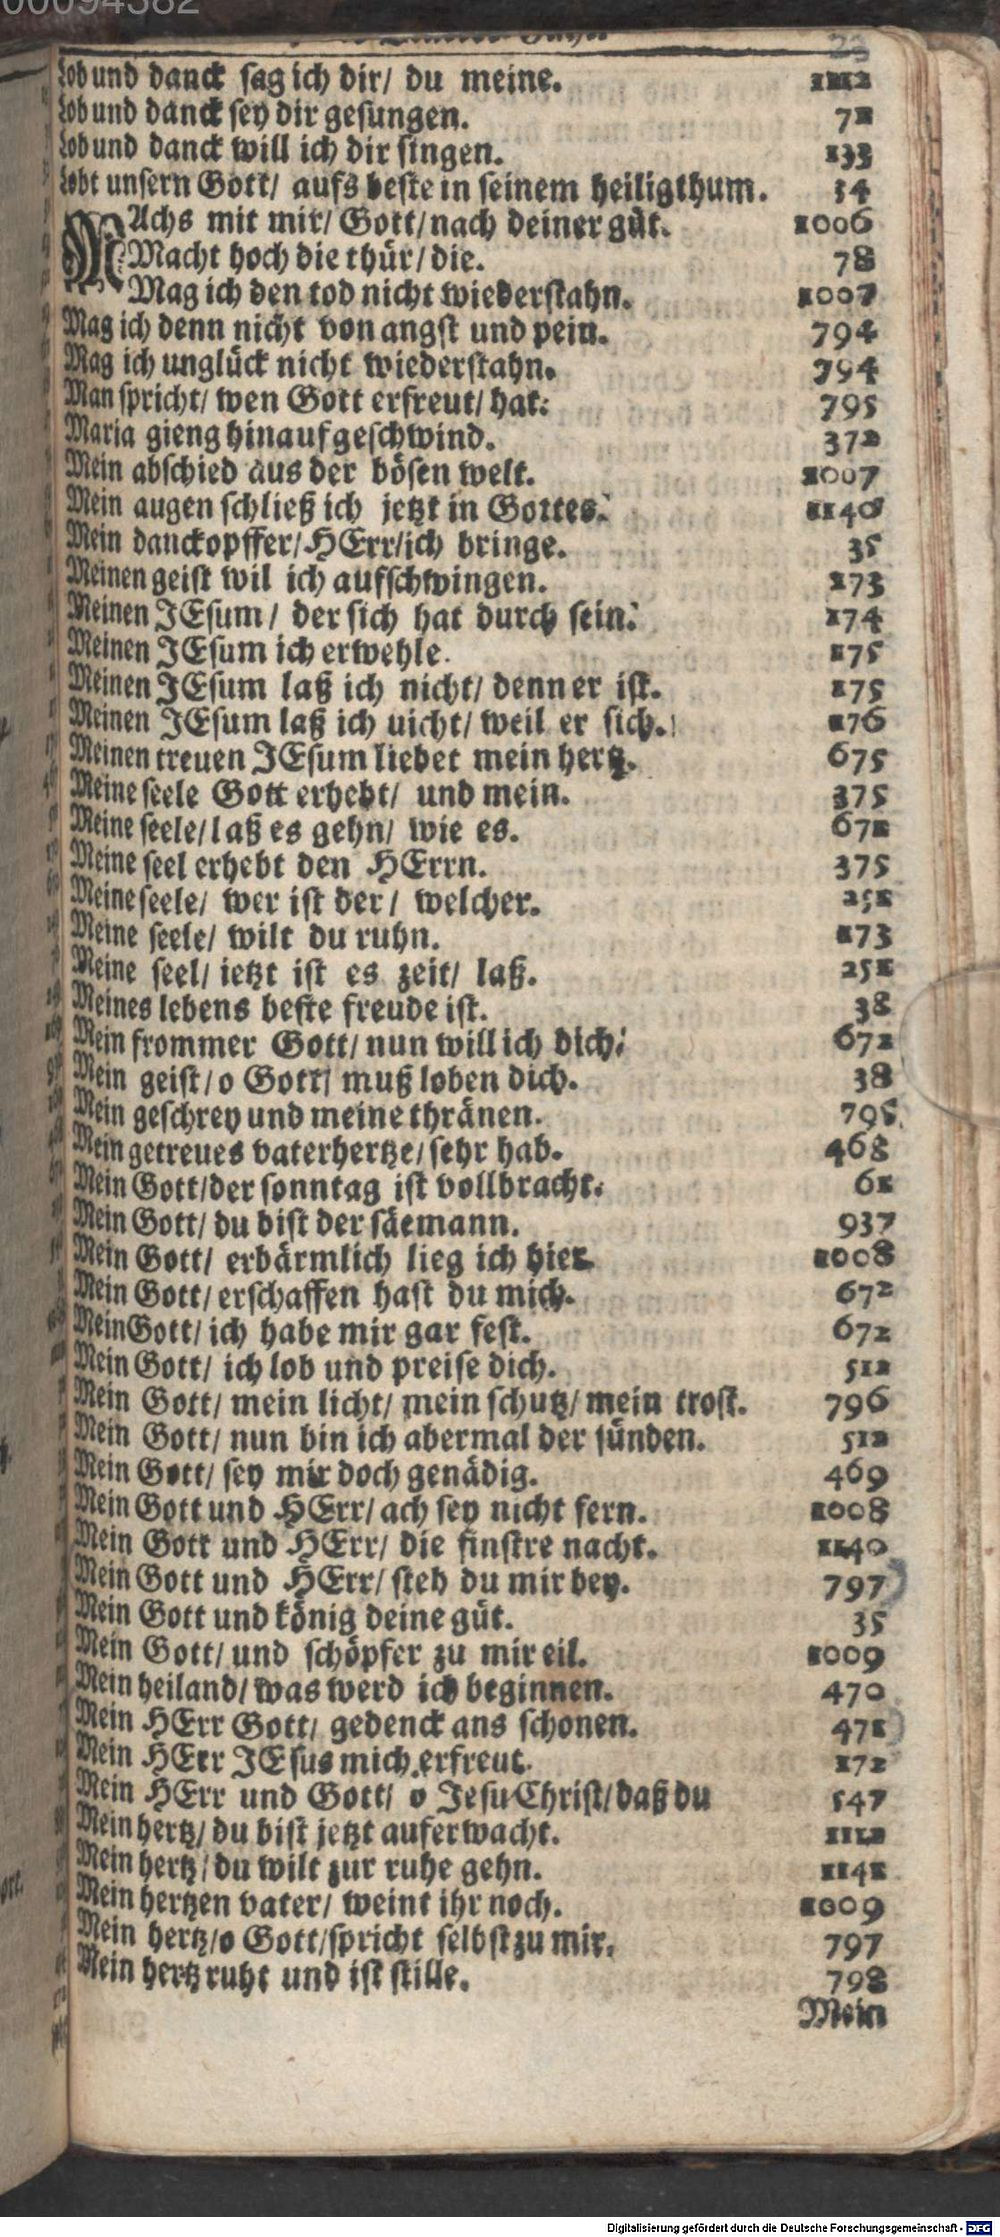 00094382
23
Lob und danck sag ich dir/ du meine. 1112
Lob und danck sey dir gesungen. 71
Lob und danck will ich dir singen. 133
Lobt unsern Gott/ aufs beste in seinem heiligthum. 34
MAchs mit mir/ Gott/ nach deiner güt. 1006
Macht hoch die thür/ die. 78
Mag ich den tod nicht wiederstahn. 1007
Mag ich denn nicht von angst und pein. 794
Mag ich unglück nicht wiederstahn. 794
Man spricht/ wen Gott erfreut/ hat. 795
Maria gieng hinauf geschwind. 372
Mein abschied aus der bösen welt. 1007
Mein augen schließ ich jetzt in Gottes. 1140
Mein danckopffer/ HErr/ ich bringe. 35
Meinen geist wil ich aufschwingen. 173
Meinen JEsum/ der sich hat durch sein. 174
Meinen JEsum ich erwehle. 175
Meinen JEsum laß ich nicht/ denn er ist. 175
Meinen JEsum laß ich uicht/ weil er sich. 176
Meinen treuen JEsum liebet mein hertz. 675
Meine seele Gott erhebt/ und mein. 375
Meine seele/ laß es gehn/ wie es. 671
Meine seel erhebt den HErrn. 375
Meine seele/ wer ist der/ welcher. 251
Meine seele/ wilt du ruhn. 173
Meine seel/ ietzt ist es zeit/ laß. 251
Meines lebens beste freude ist. 38
Mein frommer Gott/ nun will ich dich. 671
Mein geist/ o Gott/ muß loben dich. 38
Mein geschrey und meine thränen. 795
Mein getreues vaterhertze/ sehr hab. 468
Mein Gott/ der sonntag ist vollbracht. 61
Mein Gott/ du bist der säemann. 937
Mein Gott/ erbärmlich lieg ich hier. 1008
Mein Gott/ erschaffen hast du mich. 672
Mein Gott/ ich habe mir gar fest. 672
Mein Gott/ ich lob und preise dich. 512
Mein Gott/ mein licht/ mein schutz/ mein trost. 796
Mein Gott/ nun bin ich abermal der sünden. 512
Mein Gott/ sey mir doch genädig. 469
Mein Gott und HErr/ ach sey nicht fern. 1008
Mein Gott und HErr/ die finstre nacht. 1140
Mein Gott und HErr/ steh du mir bey. 797
Mein Gott und könig deine güt. 35
Mein Gott/ und schöpfer zu mir eil. 1009
Mein heiland/ was werd ich beginnen. 470
Mein HErr Gott/ gedenck ans schonen. 471
Mein HErr JEsus mich erfreut. 172
Mein HErr und Gott/ o Jesu Christ/ daß du 547
Mein hertz/ du bist jetzt auferwacht. 1112
Mein hertz/ du wilt zur ruhe gehn. 1141
Mein hertzen vater/ weint ihr noch. 1009
Mein hertz/ o Gott/ spricht selbst zu mir. 797
Mein hertz ruht und ist stille. 798
Mein
Digitalisierung gefördert durch die Deutsche Forschungsgemeinschaft - DFG